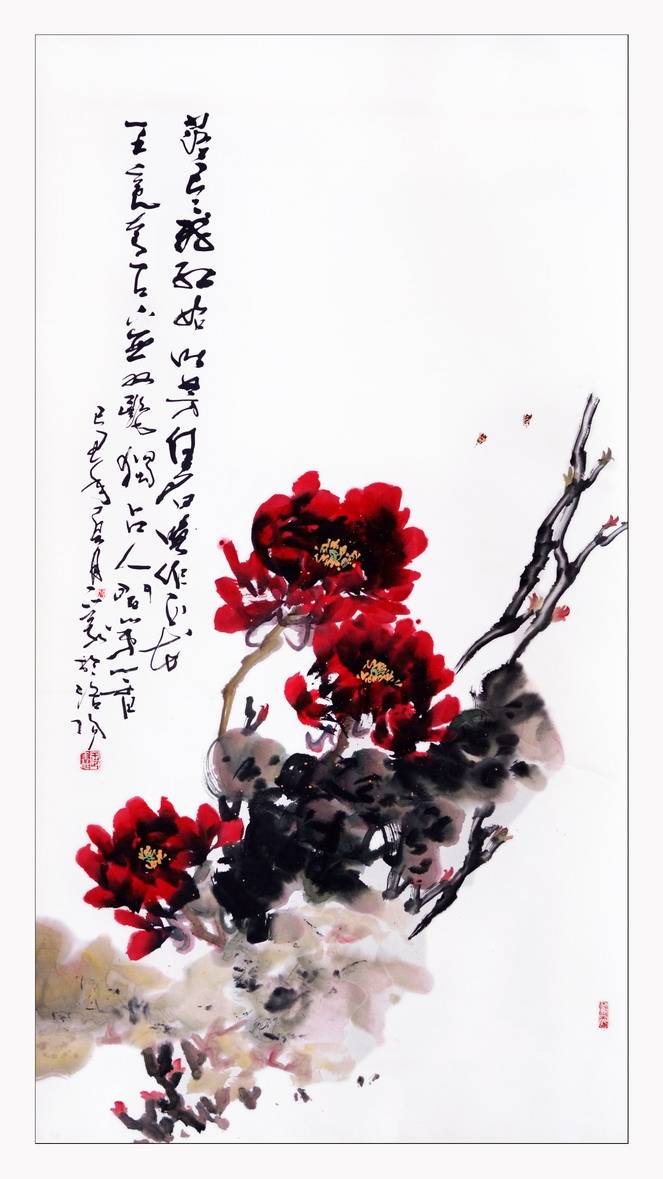 落尽残红始吐芳佳名唤作百花
王竞夸天下無双艷獨占人间第一香
己丑年夏月於洛阳